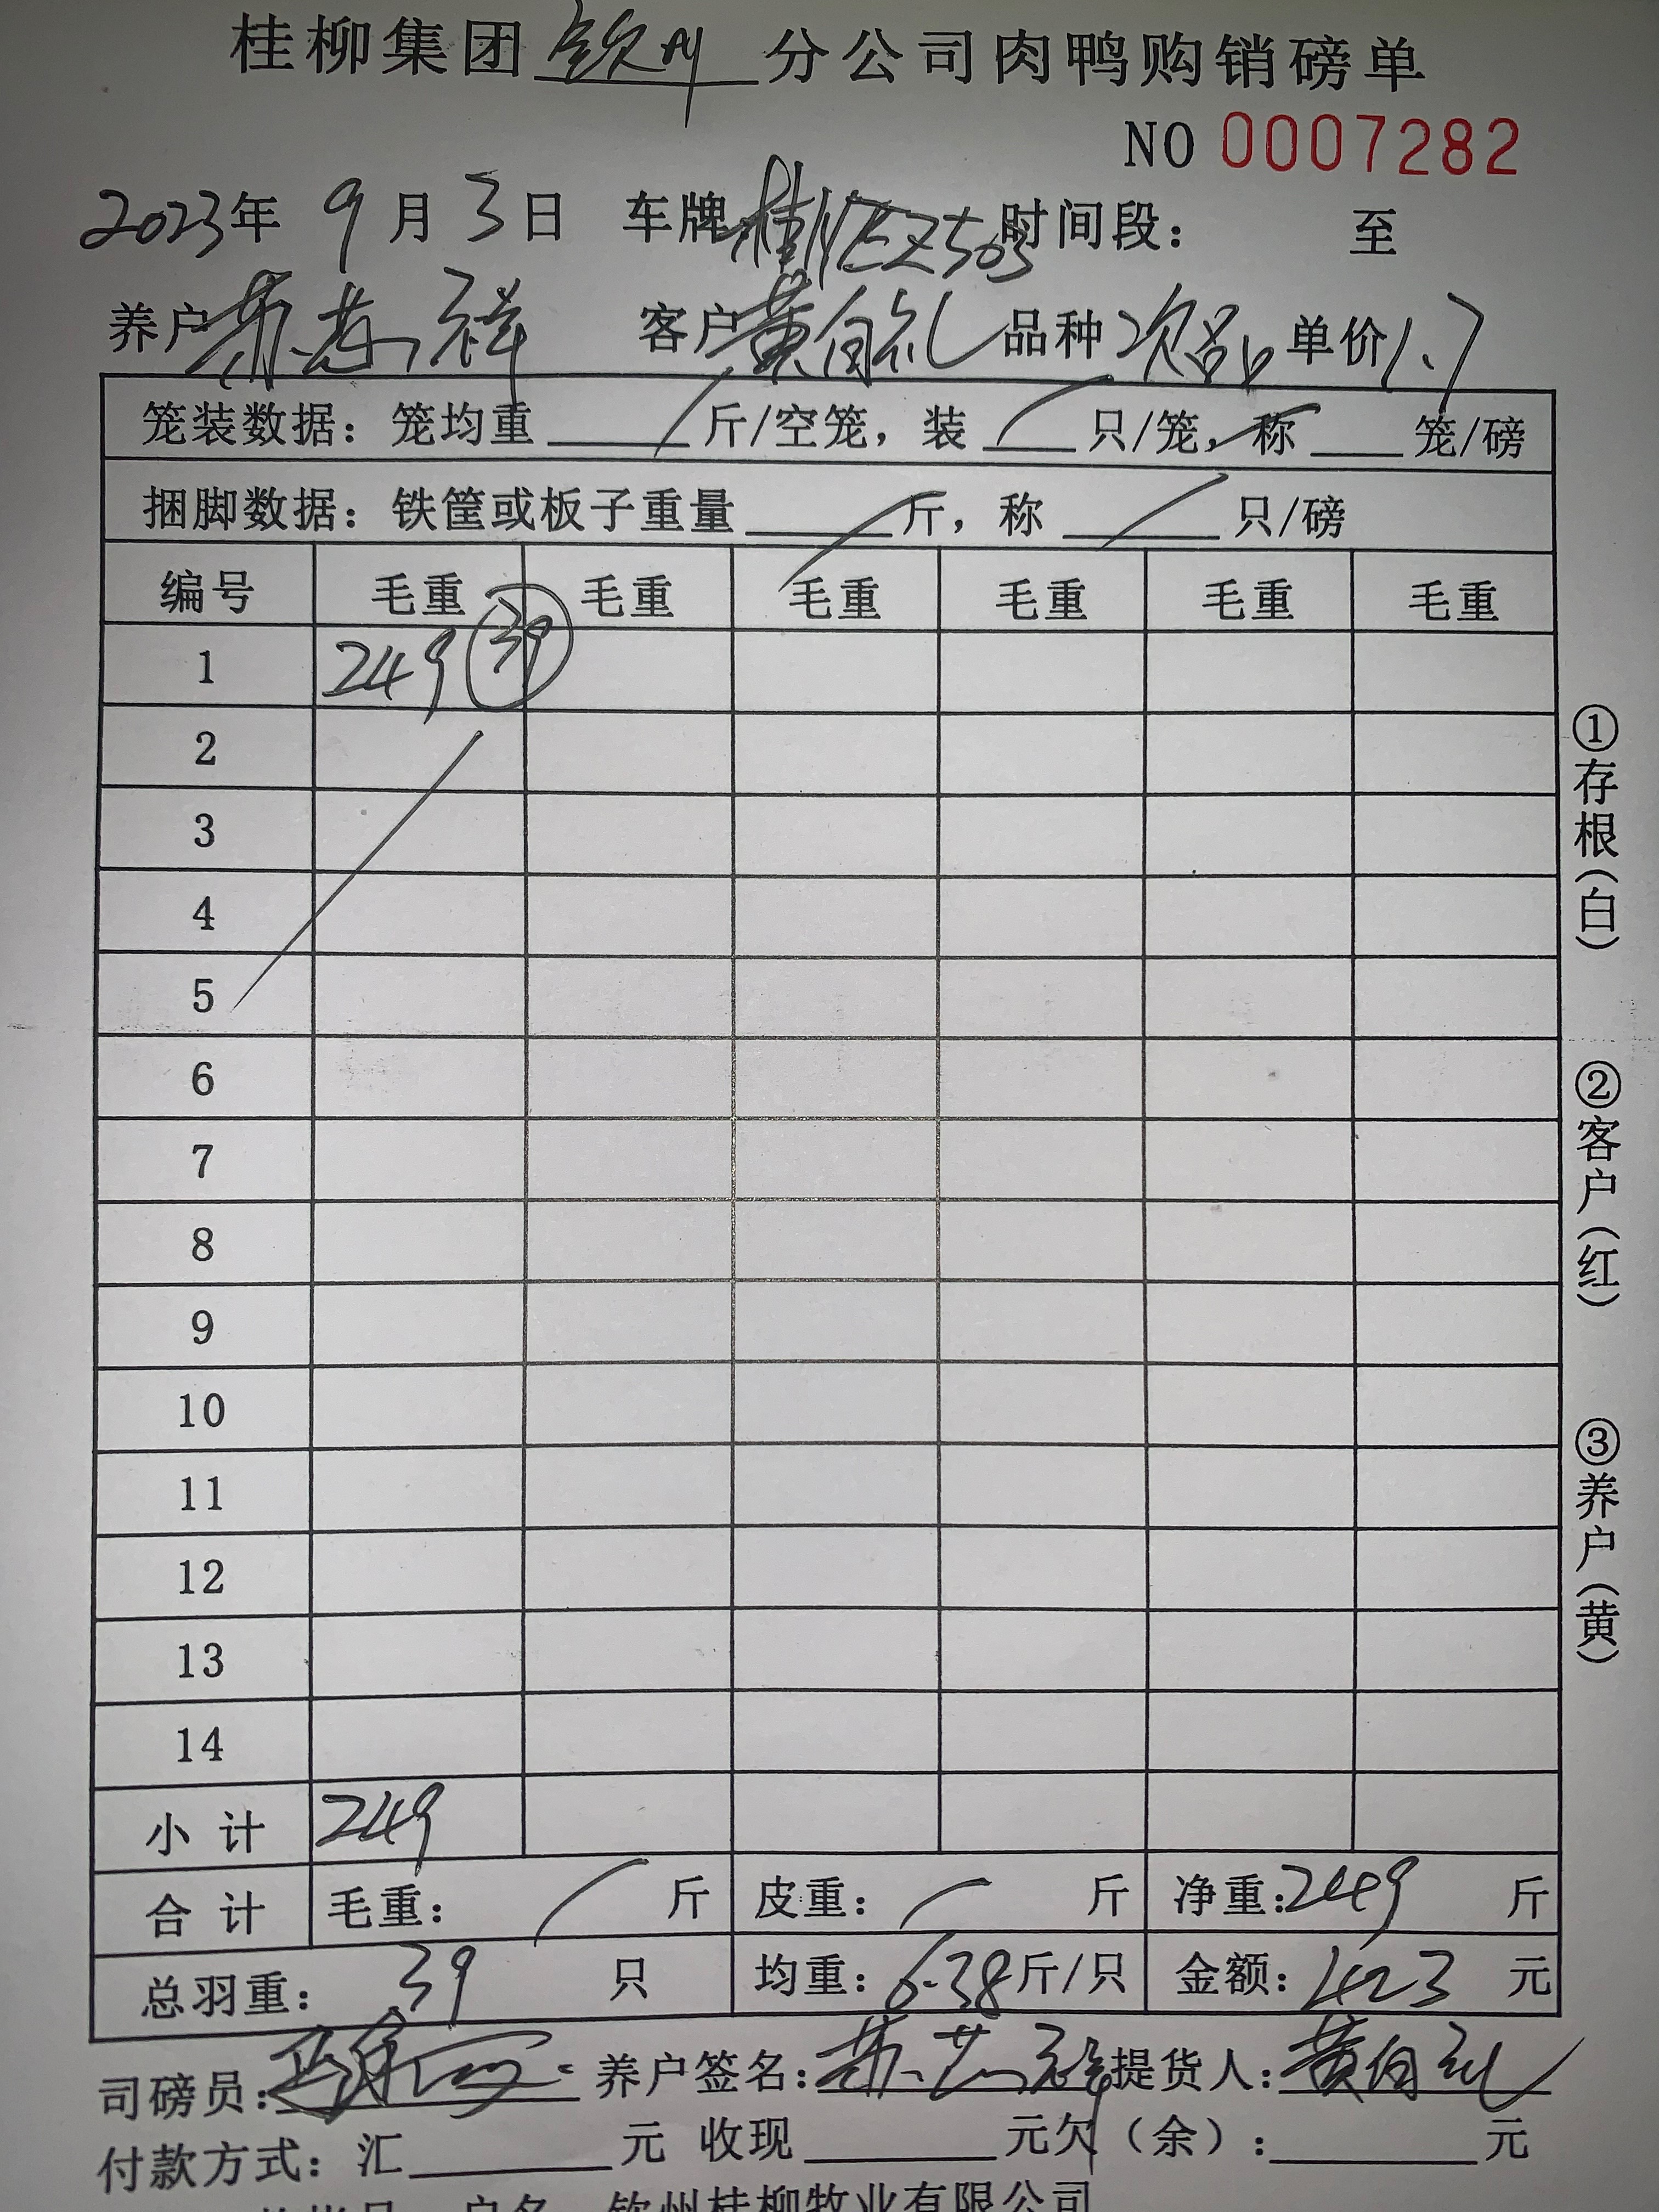 桂柳集团钦州分公司肉鸭购销磅单
NO 0007282
2023年 9月3日 车牌桂NEZ503时间段： 至
养户苏 祥 客户黄伯礼 品种次品 单价1.7
笼装数据：笼均重 / 斤/空笼，装 / 只/笼，称 笼/磅
捆脚数据：铁筐或板子重量 / 斤，称 / 只/磅
编号 毛重 毛重 毛重 毛重 毛重 毛重
1 249 39
2
3
4
5
6
7
8
9
10
11
12
13
14
小计 249
合计 毛重： / 斤 皮重： / 斤 净重：249 斤
总羽重： 39 只 均重：6.38斤/只 金额：423 元
司磅员： 养户签名：苏 祥 提货人：黄伯礼
付款方式：汇 元 收现 元欠（余）： 元
户名 钦州桂柳牧业有限公司
①存根（白）
②客户（红）
③养户（黄）